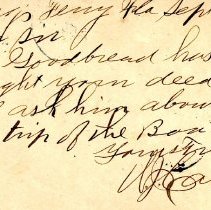 Ferry Fla Sep
sir
Goodbread has
ght your deed
ask him abou
trip of the Boa
Yours tr